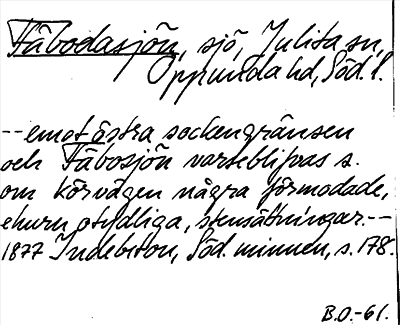 Fäbodasjön, sjö, Julita sn,
Oppunda hd, Söd. l.
--emot östra sockengränsen
och Fäbosjön varseblifvas s.
om körvägen några förmodade,
ehuru otydliga, stensättningar.--
1877 Indebetou, Söd. minnen, s. 178.
B.O.-61.